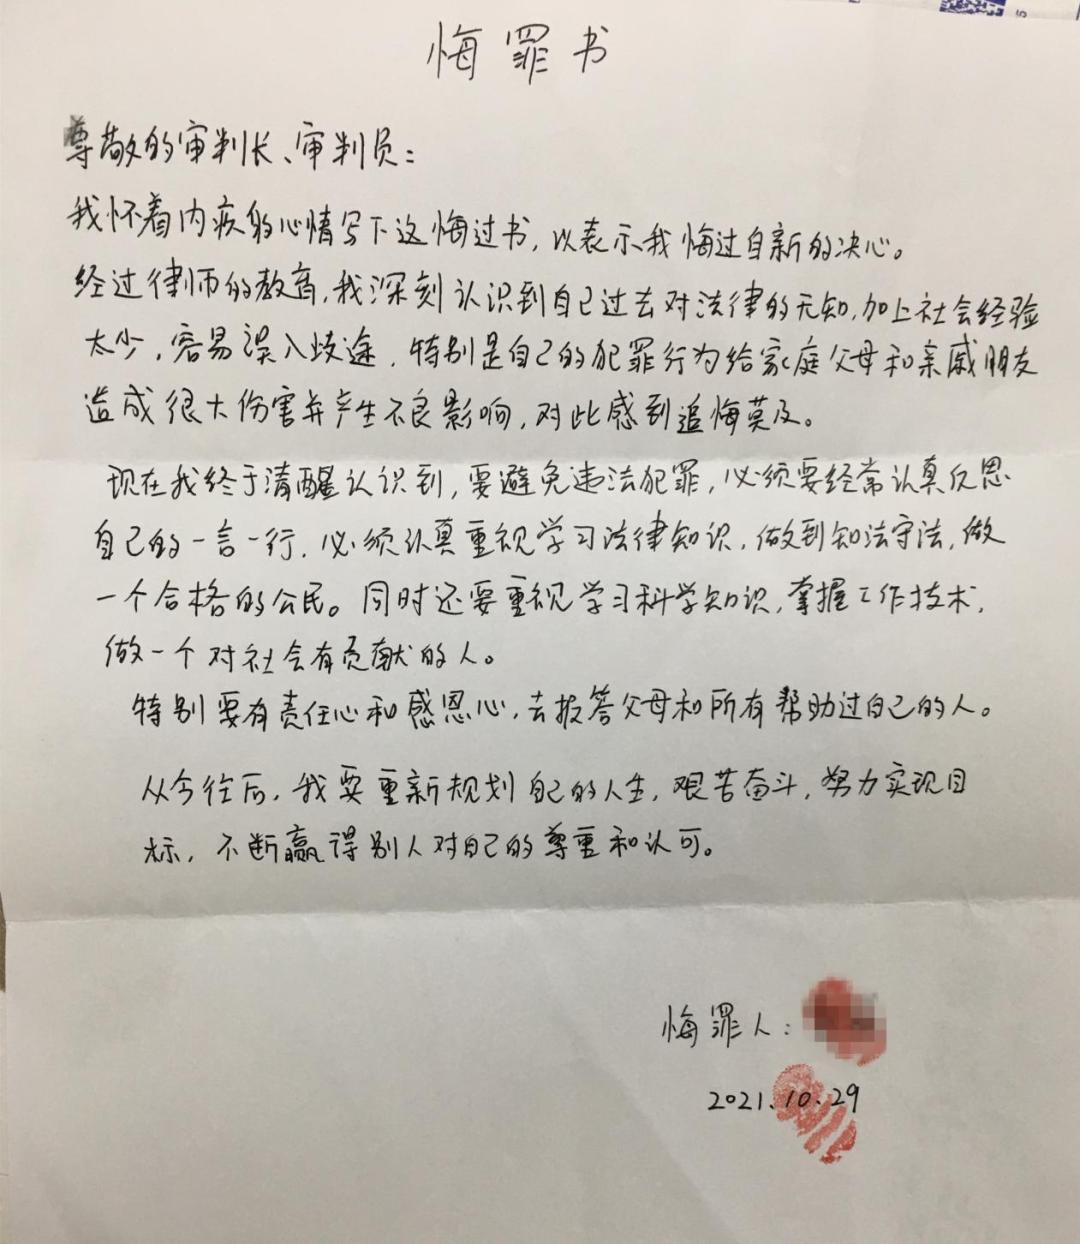 悔罪书
尊敬的审判长、审判员：
我怀着内疚的心情写下这悔过书，以表示我悔过自新的决心。
经过律师的教育，我深刻认识到自己过去对法律的无知，加上社会经验
太少，容易误入歧途，特别是自己的犯罪行为给家庭父母和亲戚朋友
造成很大伤害并产生不良影响，对此感到追悔莫及。
现在我终于清醒认识到，要避免违法犯罪，必须要经常认真反思
自己的一言一行，必须认真重视学习法律知识，做到知法守法，做
一个合格的公民。同时还要重视学习科学知识，掌握工作技术，
做一个对社会有贡献的人。
特别要有责任心和感恩心，去报答父母和所有帮助过自己的人。
从今往后，我要重新规划自己的人生，艰苦奋斗，努力实现目
标，不断赢得别人对自己的尊重和认可。
悔罪人：
2021.10.29